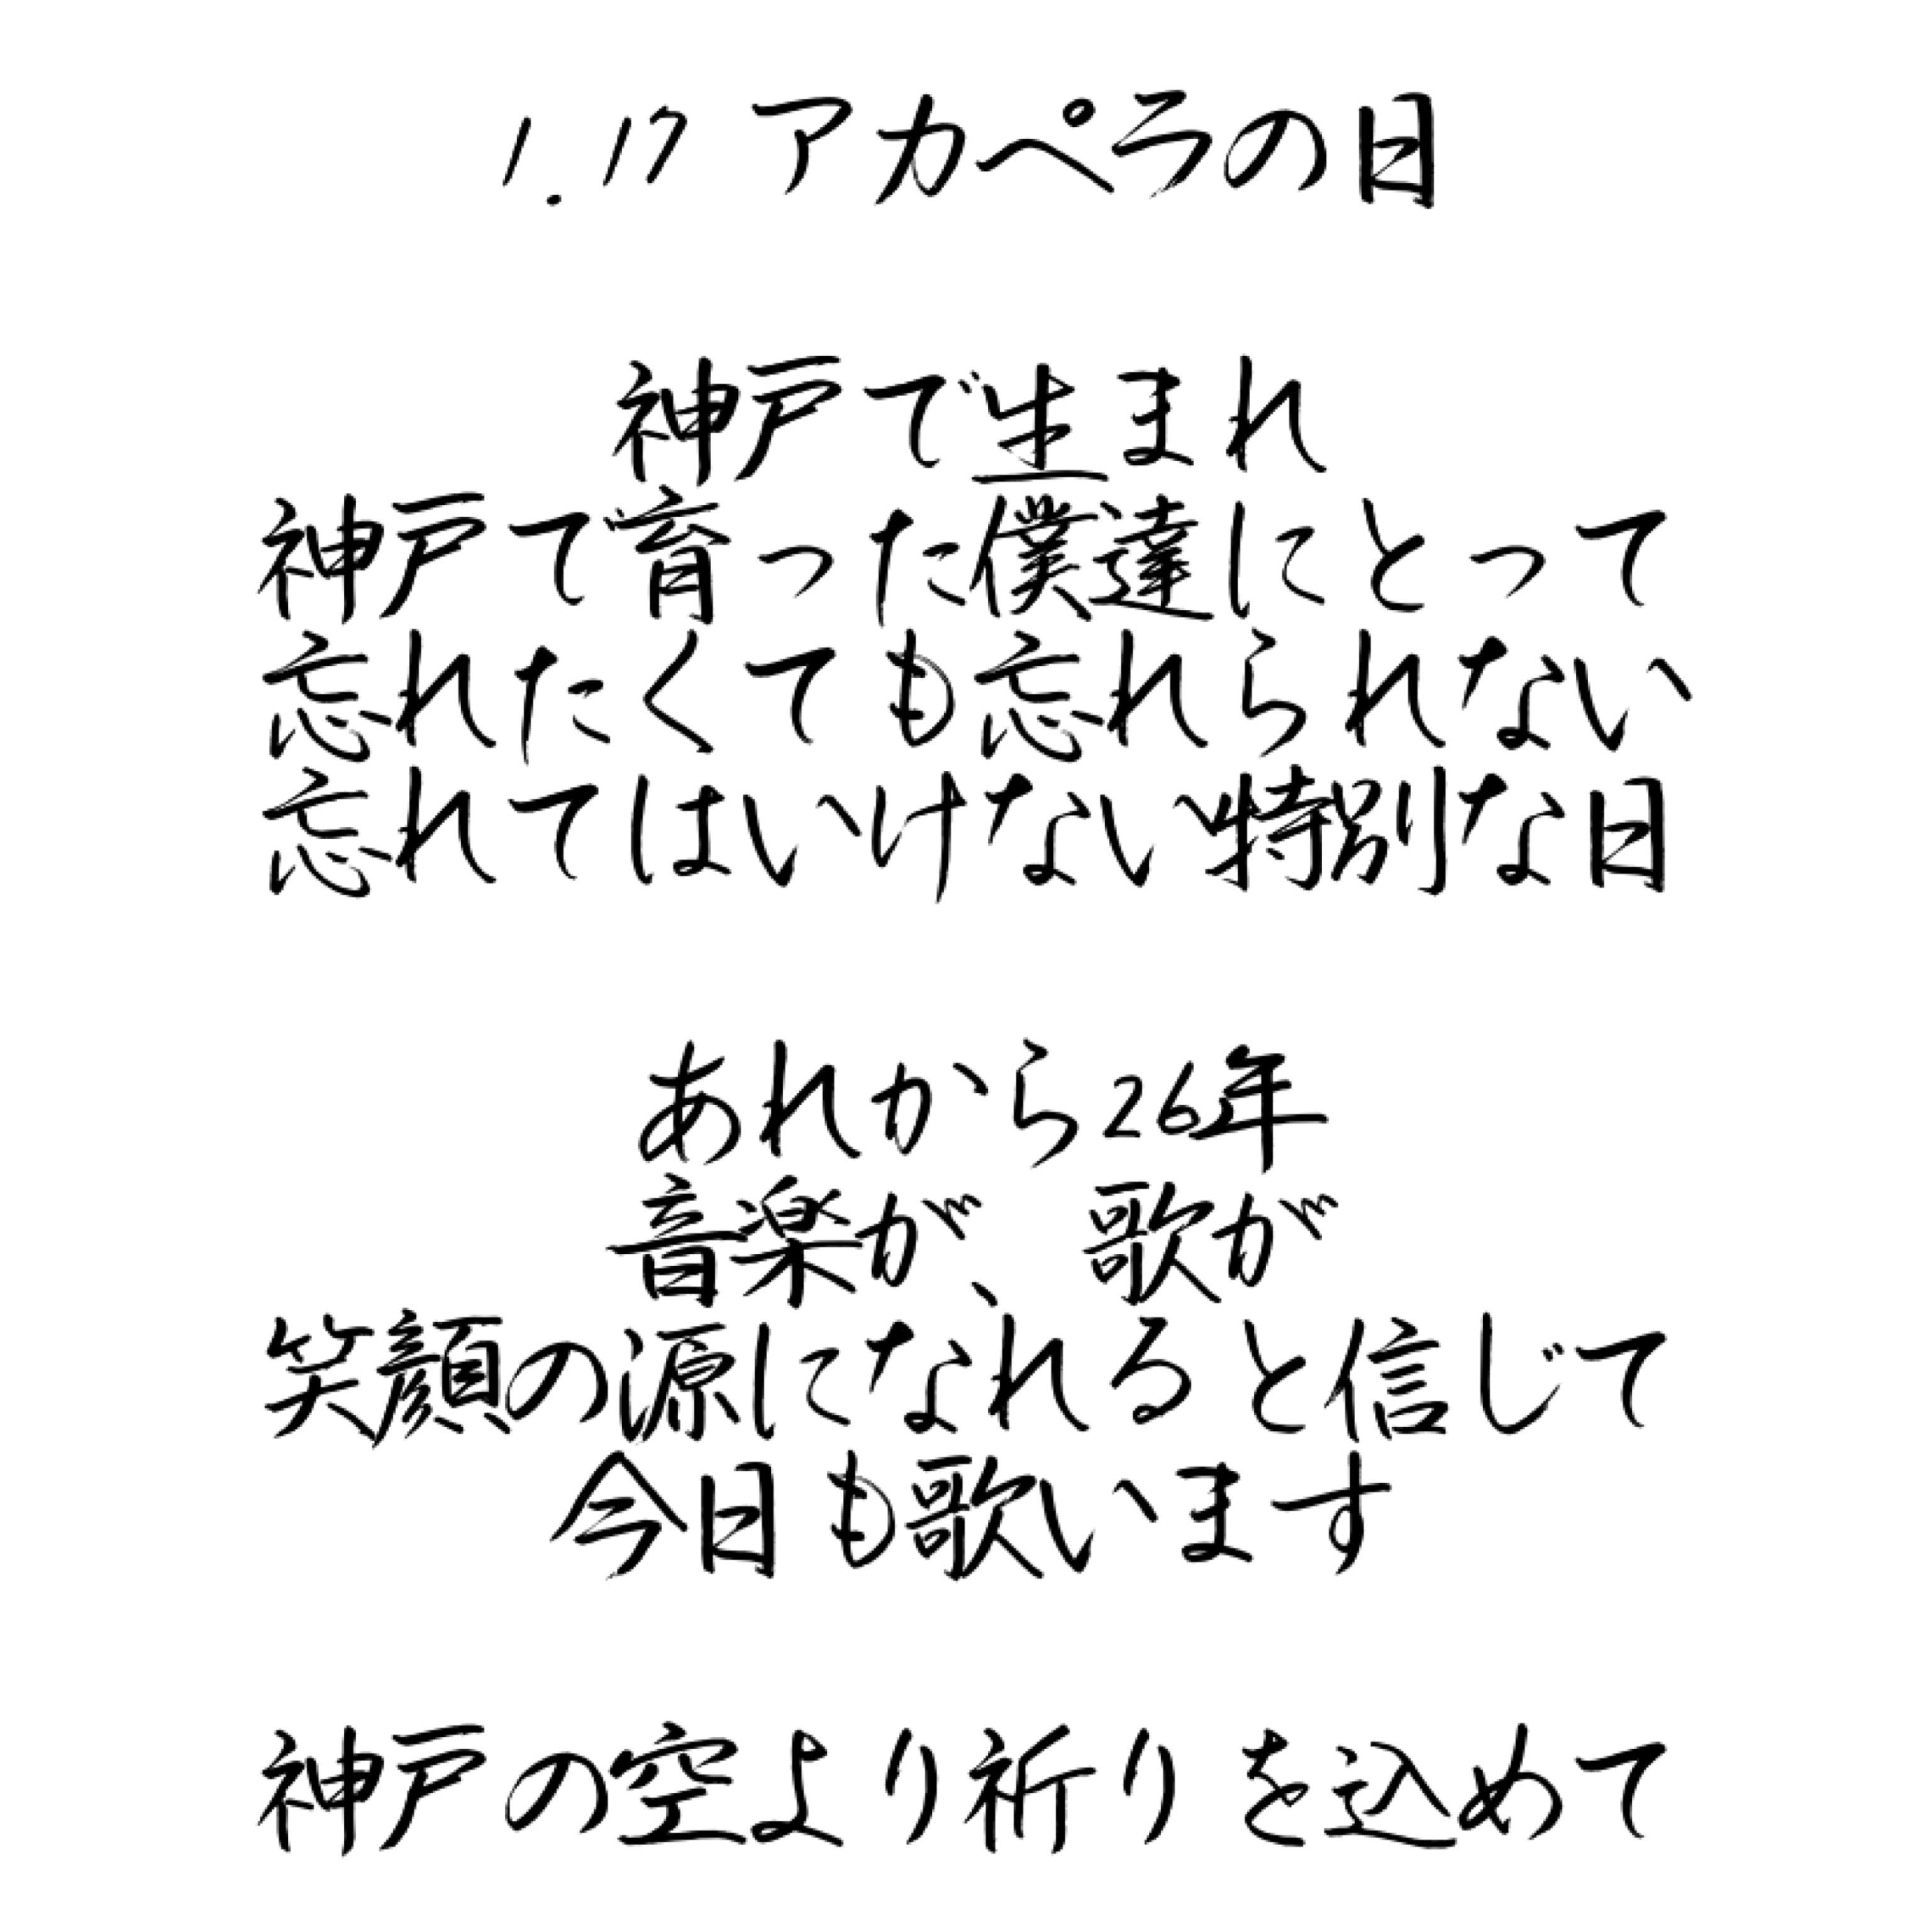 1.17 アカペラの日
神戸で生まれ
神戸で育った僕達にとって
忘れたくても忘れられない
忘れてはいけない特別な日
あれから26年
音楽が、歌が
笑顔の源になれると信じて
今日も歌います
神戸の空より祈りを込めて